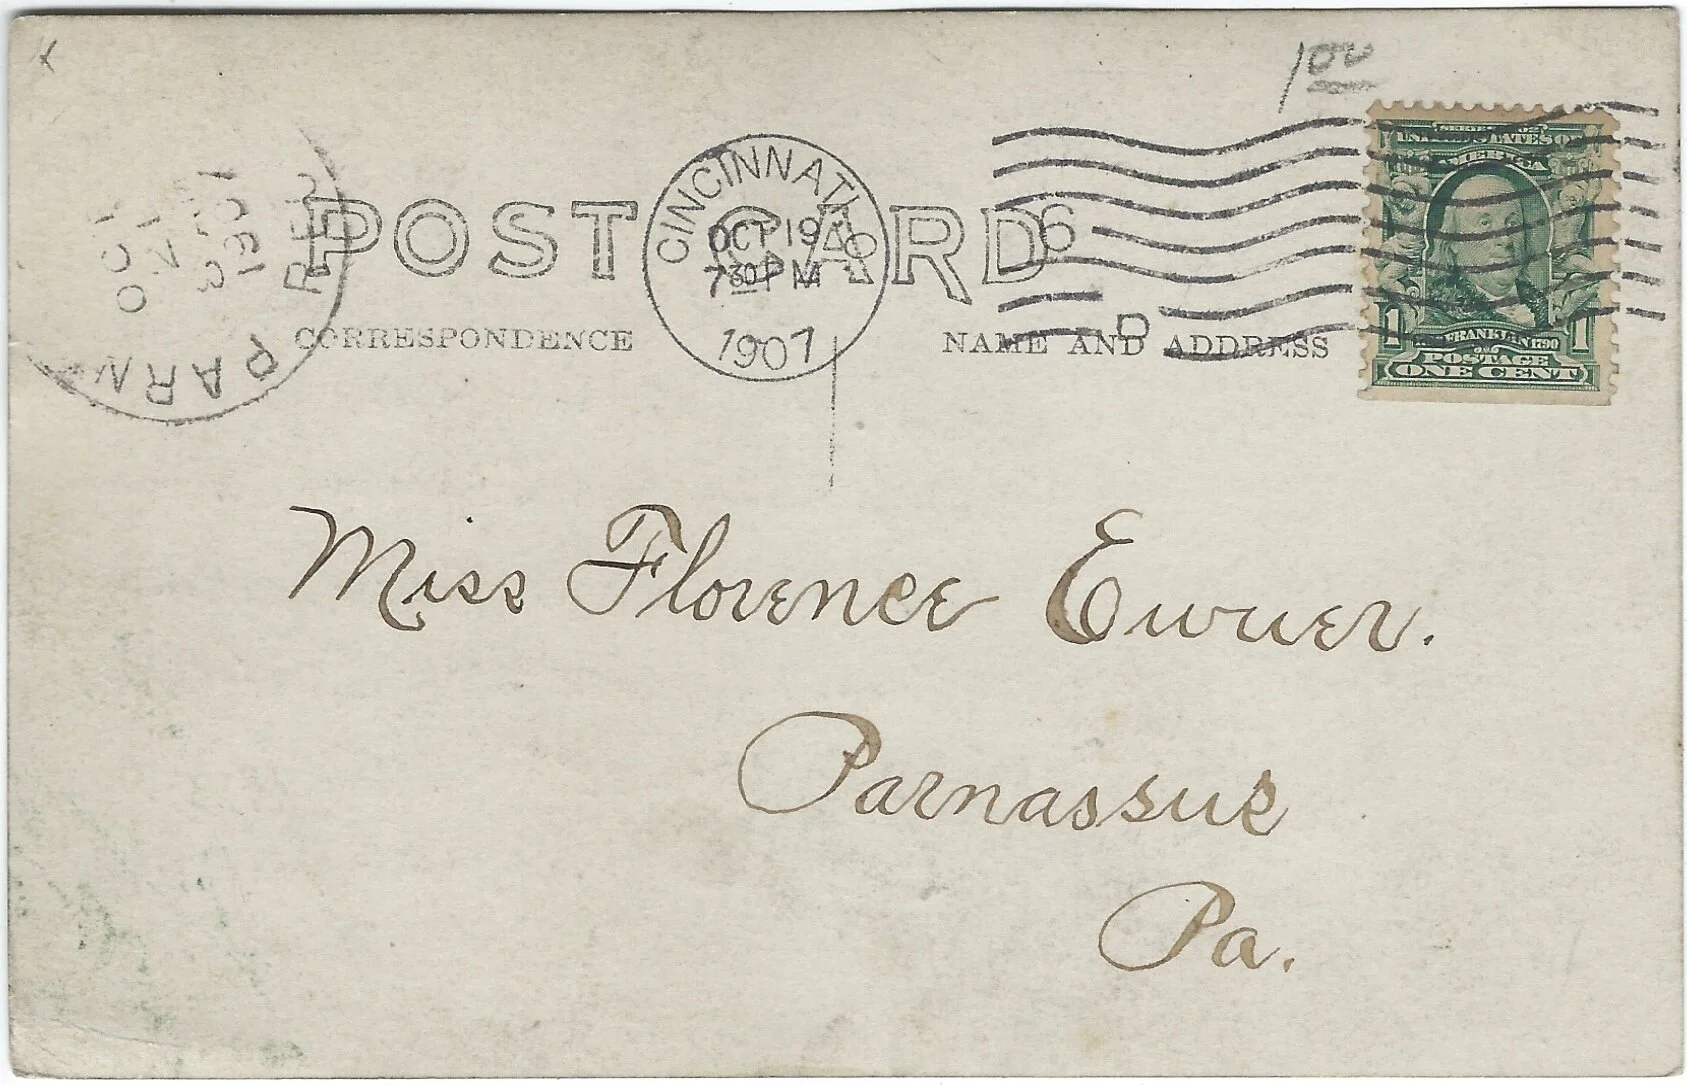 1.00
POST CARD
CORRESPONDENCE
NAME AND ADDRESS
CINCINNATI, O.
OCT 19
7 30 PM
1907
6
D
PARN
REC'D.
OCT
21
1907
SERIES 1902
UNITED STATES OF
AMERICA
FRANKLIN 1790
POSTAGE
1 ONE CENT 1
Miss Florence Ewer.
Parnassus
Pa.